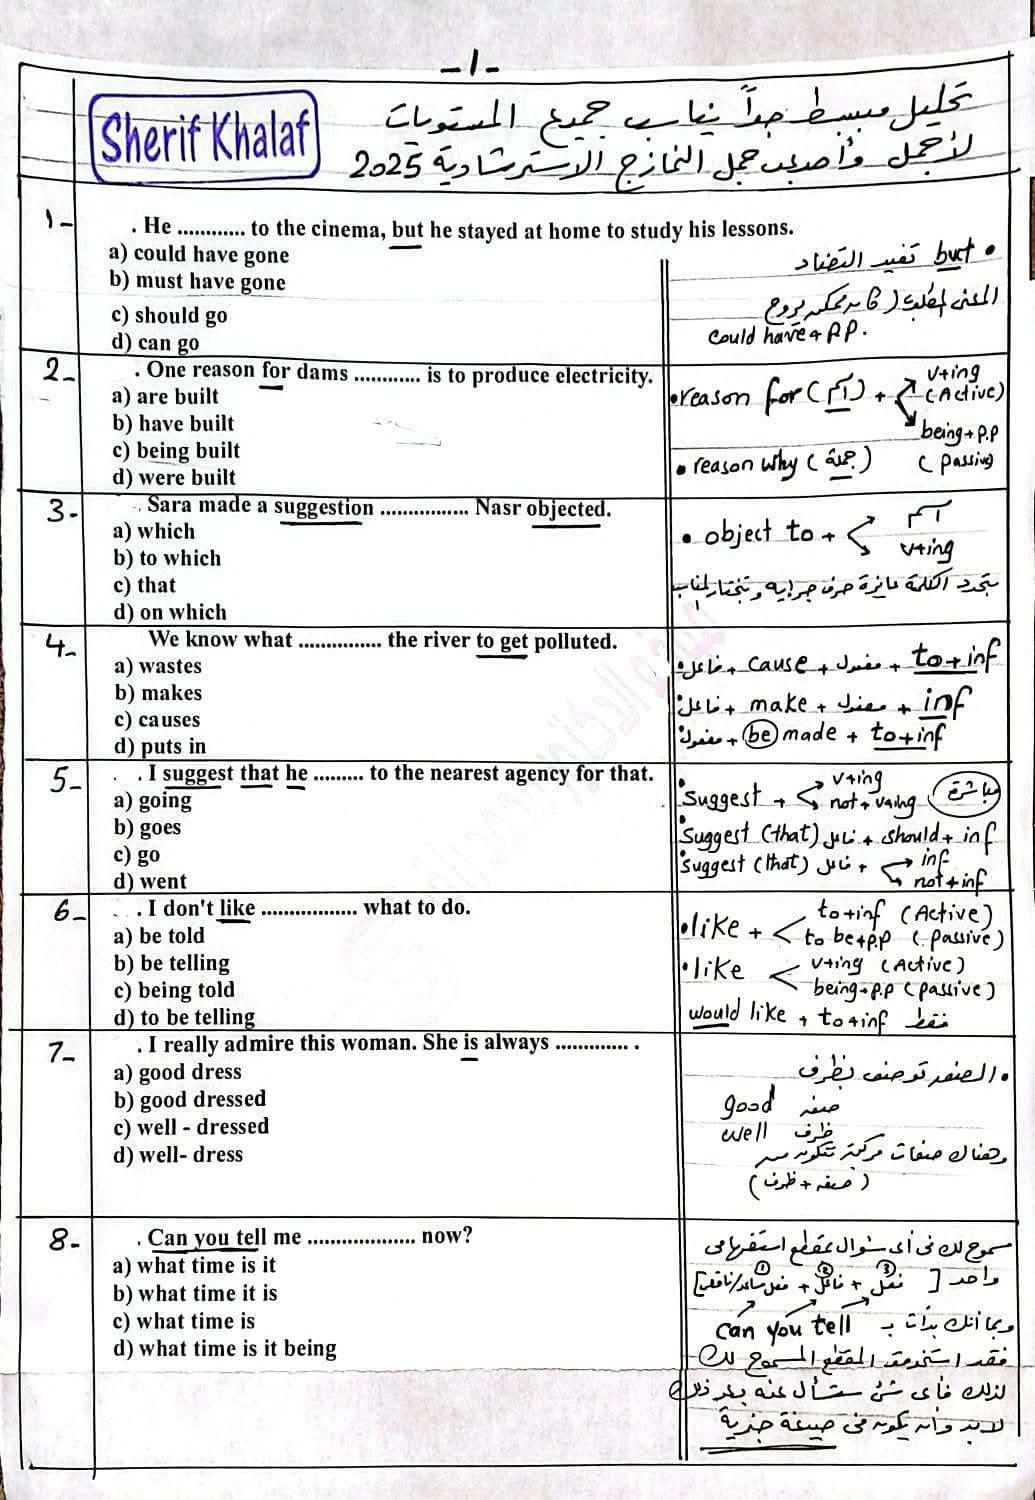 -1-
Sherif Khalaf
تحليل مبسط جداً يناسب جميع المستويات
لأجمل وأصعب جمل النماذج الاسترشادية 2025
1-
. He ............ to the cinema, but he stayed at home to study his lessons.
a) could have gone
b) must have gone
c) should go
d) can go
• but تفيد التضاد
المعنى المطلوب (كان ممكن يروح
could have + P.P.
2-
. One reason for dams ............ is to produce electricity.
a) are built
b) have built
c) being built
d) were built
• reason for (اسم) +
v+ing
(Active)
being+p.p
(passive)
• reason why (جملة)
3-
. Sara made a suggestion ................ Nasr objected.
a) which
b) to which
c) that
d) on which
• object to +
اسم
v+ing
بتحدد الكلمة عايزة حرف جر ايه وتختار المناسب
4-
We know what ............... the river to get polluted.
a) wastes
b) makes
c) causes
d) puts in
• فاعل + cause + مفعول + to+inf
• فاعل + make + مفعول + inf
• مفعول + be made + to+inf
5-
. I suggest that he ......... to the nearest agency for that.
a) going
b) goes
c) go
d) went
• suggest +
v+ing
not+v+ing
مباشرة
• suggest (that) فاعل + should + inf
• suggest (that) فاعل +
inf
not+inf
6-
. I don't like ................. what to do.
a) be told
b) be telling
c) being told
d) to be telling
• like +
to+inf (Active)
to be+p.p (passive)
• like
v+ing (Active)
being+p.p (passive)
would like + to+inf فقط
7-
. I really admire this woman. She is always ............. .
a) good dress
b) good dressed
c) well - dressed
d) well- dress
• الصفة توصف بظرف
good صفة
well ظرف
وهناك صفات مركبة تتكون من
(صفة + ظرف)
8-
. Can you tell me ................... now?
a) what time is it
b) what time it is
c) what time is
d) what time is it being
مسموح لك فى أى سؤال بمقطع استفهامى
واحد [فعل مساعد/ناقص + فاعل + فعل]
1 2 3
وبما أنك بدأت بـ can you tell
فقد استخدمت المقطع المسموح لك
لذلك فأى شئ ستسأل عنه بعد ذلك
لابد وأن يكون فى صيغة خبرية